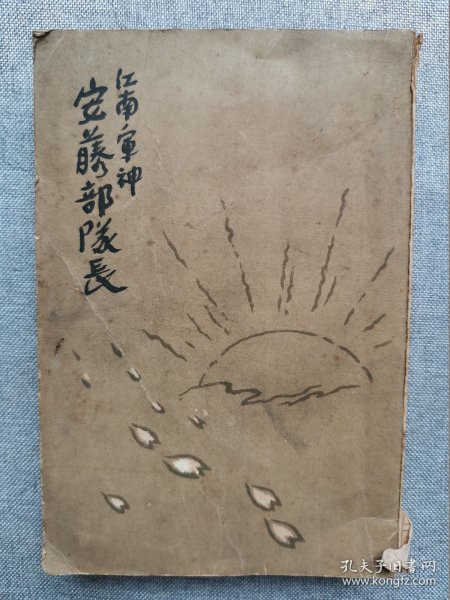 江南軍神
安藤部隊長
孔夫子旧书网
www.kongfz.com